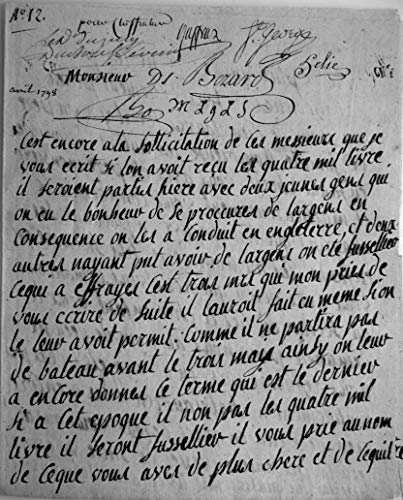 No. 12.
pour
St. Georges
Monsieur De Bozard Zelie
avril 1798
Cest encore a la sollicitation de ces messieurs que je
vous ecrit si lon avoit reçu les quatre mil livre
il seroent partis hiere avec deux jeunes gens qui
on eu le bonheur de se procures de largens en
consequence on les a conduit en engleterre, et deux
autres nayant put avoir de largens on ete fussellier
cequi a effrayes cest trois mrs qui mon pries de
vous ecrire de suite il lauroit fait eu meme si on
le leur avoit permit. Comme il ne partira pas
de bateau avant le trois mays ainsy on leur
a encore donnes ce terme qui est le dernier
si a cet epoque il non pas les quatre mil
livre il seront fussellier il vous prie au nom
de ceque vous aves de plus chere et de cequil tre